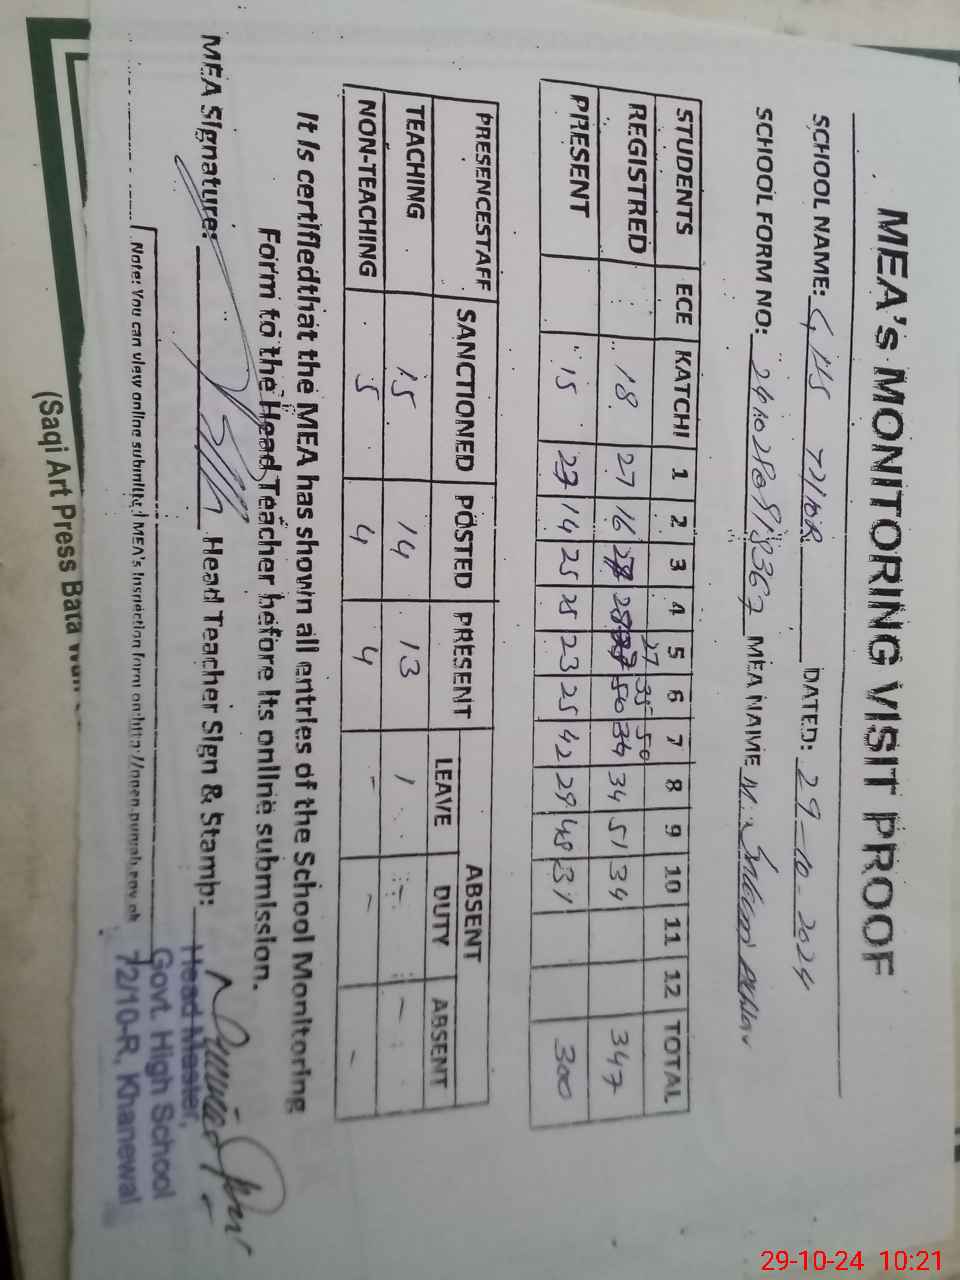 MEA's MONITORING VISIT PROOF
SCHOOL NAME: GHS 72/10R DATED: 29-10-2024
SCHOOL FORM NO: MEA NAME M.
STUDENTS ECE KATCHI 1 2 3 4 5 6 7 8 9 10 11 12 TOTAL
27 35 50
REGISTRED 18 27 16 28 34 34 51 34 347
PRESENT 15 27 14 25 25 23 25 42 29 48 31 300
PRESENCESTAFF SANCTIONED POSTED PRESENT ABSENT
LEAVE DUTY ABSENT
TEACHING 15 14 13 1 - -
NON-TEACHING 5 4 4 - - -
It is certifiedthat the MEA has shown all entries of the School Monitoring
Form to the Head Teacher before its online submission.
MEA Signature: Head Teacher Sign & Stamp:
Head Master,
Govt. High School
72/10-R, Khanewal
Note: You can view online submitted MEA's Inspection form on:http://open.punjab.gov.pk
(Saqi Art Press Bata
29-10-24 10:21